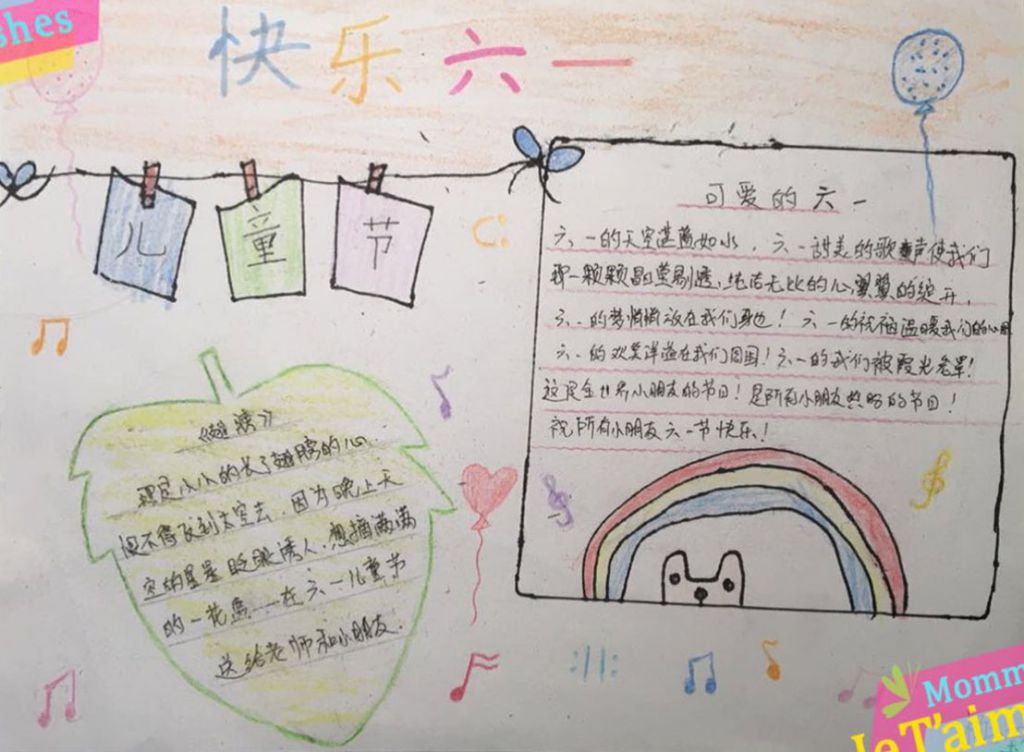 shes
快乐六一
儿童节
可爱的六一
六一的天空湛蓝如水，六一甜美的歌声使我们
那一颗颗晶莹剔透、纯洁无比的心翼翼的绽开，
六一的梦悄悄放在我们身边！六一的祝福温暖我们的心田
六一的欢笑洋溢在我们周围！六一的我们被霞光笼罩！
这是全世界小朋友的节日！是所有小朋友热盼的节日！
祝所有小朋友六一节快乐！
《翅膀》
那是小小的长了翅膀的心
恨不得飞到太空去，因为晚上天
空的星星眨眼诱人.想摘满满
的一花篮——在六一儿童节
送给老师和小朋友.
Momm
JeT'aim